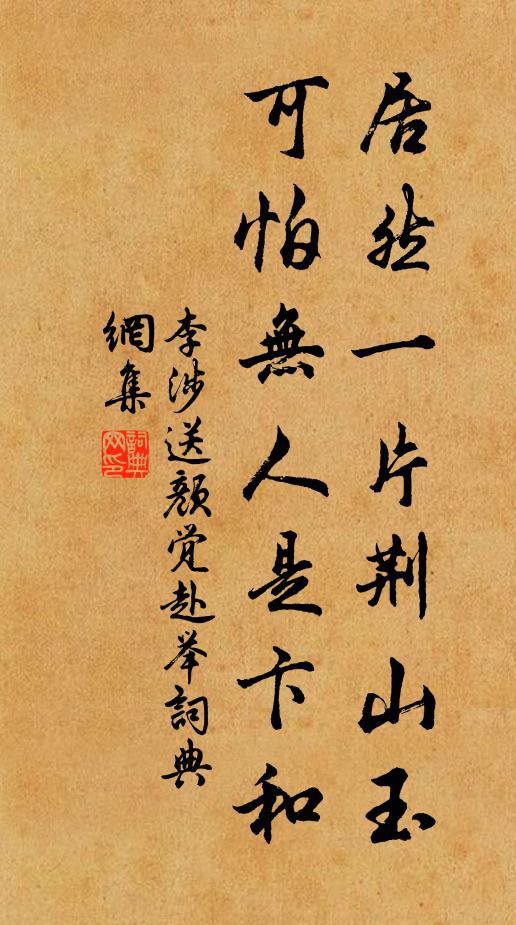 居然一片荆山玉
可怕無人是卞和
李涉送顏觉赴举詞典
網集
詞典
网印